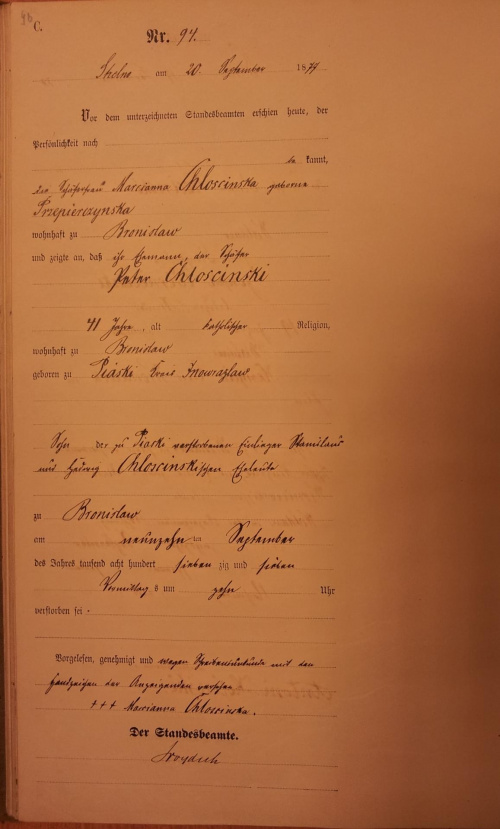 C.
Nr. 94.
Strelno am 20. September 1877
Vor dem unterzeichneten Standesbeamten erschien heute, der
Persönlichkeit nach
be kannt,
die Schäferfrau Marcianna Chloscinska geborene
Przepierczynska
wohnhaft zu Bronislaw
und zeigte an, daß ihr Ehemann, der Schäfer
Peter Chloscinski
41 Jahre, alt katholischer Religion,
wohnhaft zu Bronislaw
geboren zu Piaski Kreis Inowrazlaw
Sohn der zu Piaski verstorbenen Einlieger Stanislaus
und Hedwig Chloscinskischen Eheleute
zu Bronislaw
am neunzehn ten September
des Jahres tausend acht hundert sieben zig und sieben
Vormittag s um zehn Uhr
verstorben sei.
Vorgelesen, genehmigt und wegen Schreibensunkunde mit den
Handzeichen der Anzeigenden versehen
+++ Marcianna Chloscinska.
Der Standesbeamte.